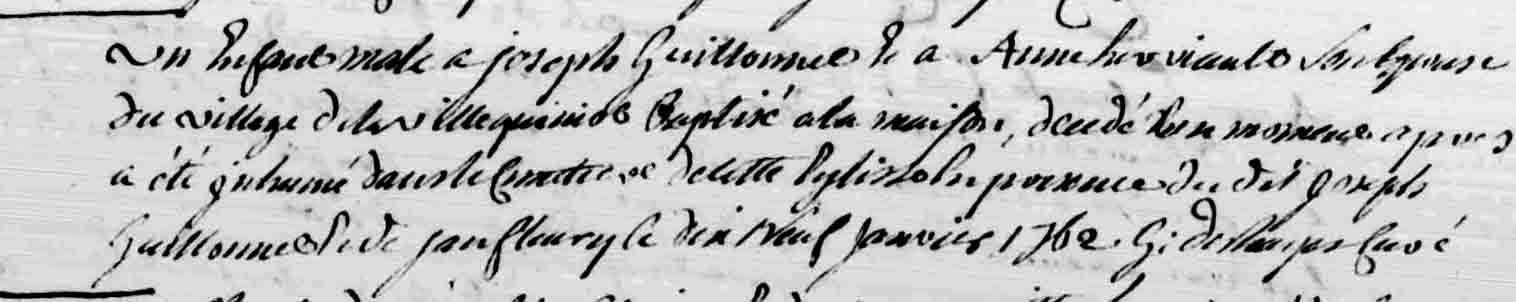 un Enfant male a joseph Guillonnet & a Anne son Epouse
du village de la villequinio Baptisé a la maison, decedé un moment apres
a été inhumé dans le Cimetiere de cette Eglise En presence du dit joseph
Guillonnet & de jan fleury le dix neuf janvier 1762. G: deschamps Curé